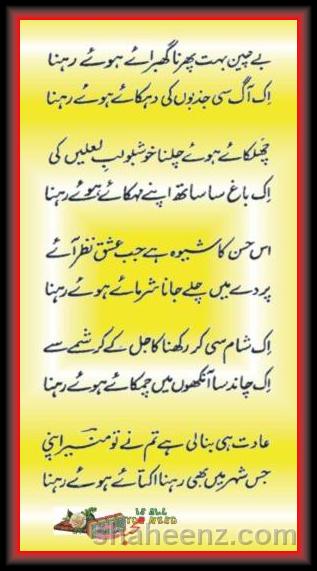 بے چین بہت پھرنا گھبرائے ہوئے رہنا
اِک آگ سی جذبوں کی دہکائے ہوئے رہنا
چھلکائے ہوئے چلنا خوشبو لبِ لعلیں کی
اِک باغ سا ساتھ اپنے مہکائے ہوئے رہنا
اس حسن کا شیوہ ہے جب عشق نظر آئے
پردے میں چلے جانا شرمائے ہوئے رہنا
اِک شام سی کر رکھنا کاجل کے کرشمے سے
اِک چاند سا آنکھوں میں چمکائے ہوئے رہنا
عادت ہی بنا لی ہے تم نے تو منیر اپنی
جس شہر میں بھی رہنا اکتائے ہوئے رہنا
IS ALL
YOU NEED
shaheenz.com